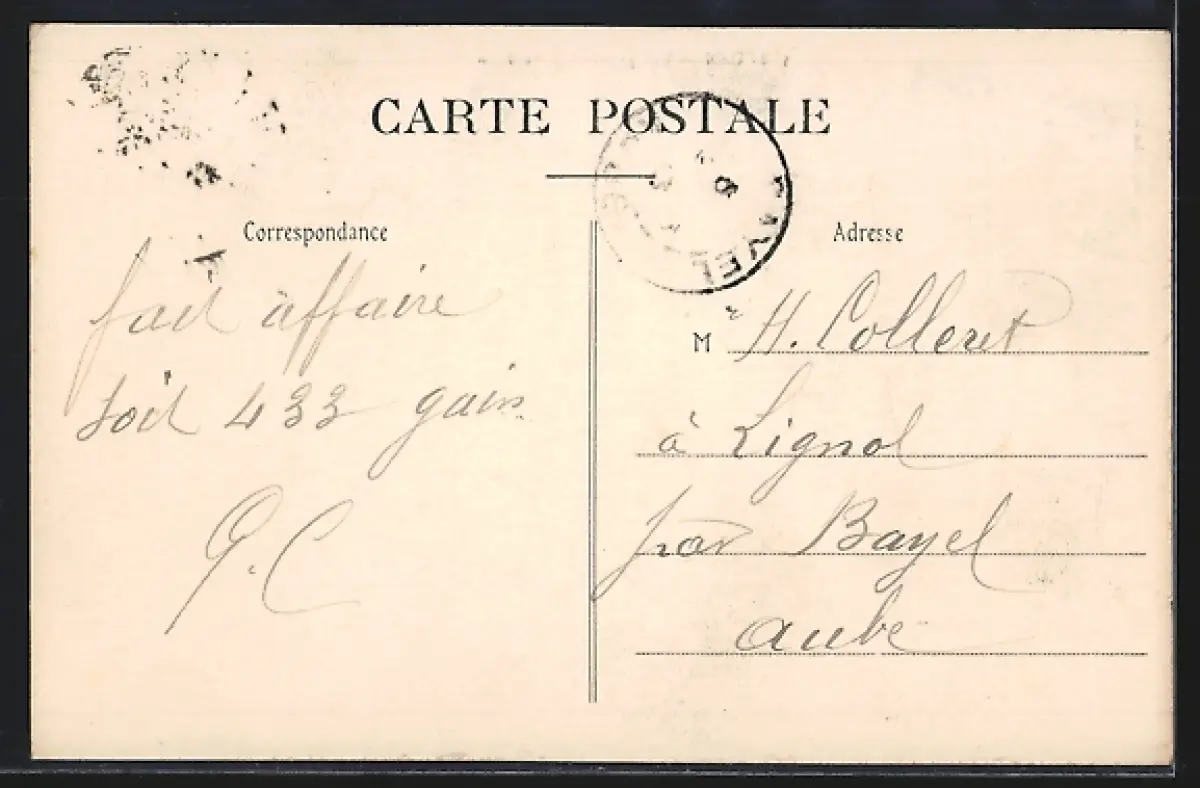 CARTE POSTALE
Correspondance
fait affaire
soit 433 gain
C
Adresse
M r H. Colleret
à Lignol
par Bayel
aube